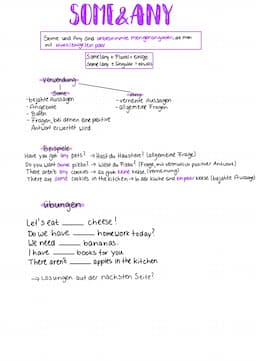 SOME & ANY
Some und Any sind unbestimmte mengenangaben, die man
mit
Some/any + Plural = einige
Some/any + Singular = etwas
Verwendung
Some
Any
-bejahte Aussagen
-verneinte Aussagen
-Angebote
-allgemeine Fragen
-Bitten
-Fragen, bei denen eine positive
Antwort erwartet wird
Beispiele
Have you got any pets? → Hast du Haustiere? (allgemeine Frage)
Do you want some pizza? → Willst du Pizza? (Frage, mit vermutlich positiver Antwort)
There aren't any cookies → Es gibt keine Kekse (Verneinung)
There are some cookies in the kitchen → In der Küche sind ein paar Kekse (bejahte Aussage)
Übungen
Let's eat ____ cheese!
Do we have ____ homework today?
We need ____ bananas.
I have ____ books for you
There aren't ____ apples in the kitchen
→ Lösungen auf der nächsten Seite!